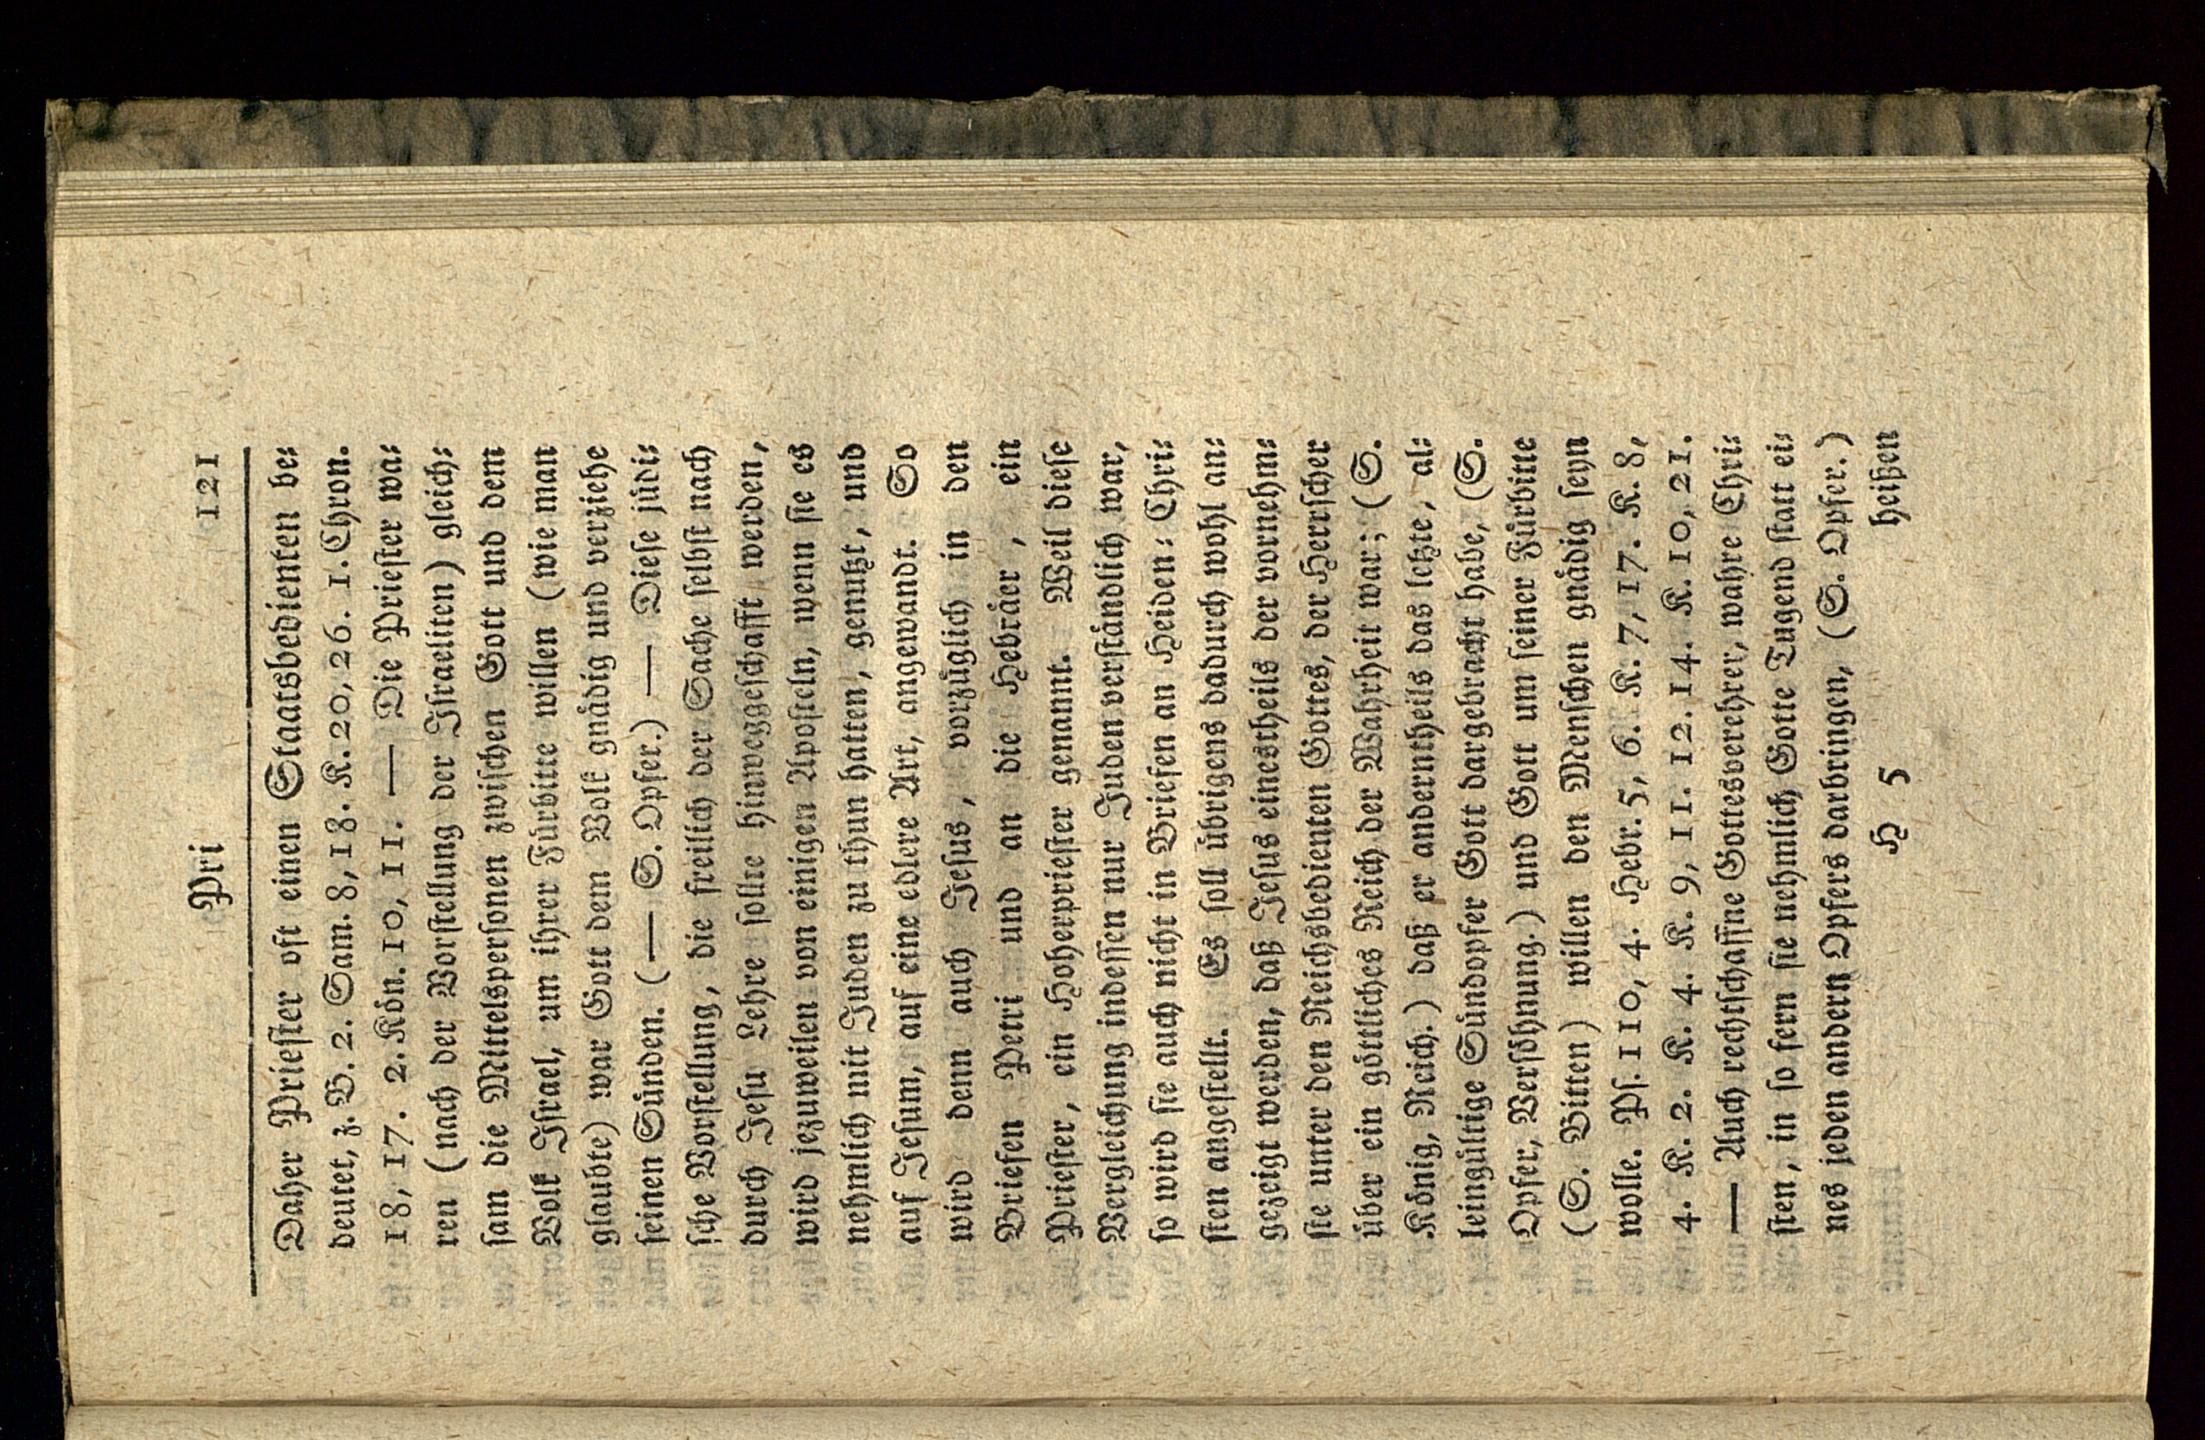 Pri 121
Daher Prieſter oft einen Staatsbedienten be⸗
deutet, z. B. 2. Sam. 8, 18. K. 20, 26. 1. Chron.
18, 17. 2. Kön. 10, 11. — Die Prieſter wa⸗
ren (nach der Vorſtellung der Iſraeliten) gleich⸗
ſam die Mittelsperſonen zwiſchen Gott und dem
Volk Iſrael, um ihrer Fürbitte willen (wie man
glaubte) war Gott dem Volk gnädig und verziehe
ſeinen Sünden. (— S. Opfer.) — Dieſe jüdi⸗
ſche Vorſtellung, die freilich der Sache ſelbſt nach
durch Jeſu Lehre ſollte hinweggeſchafft werden,
wird jezuweilen von einigen Apoſteln, wenn ſie es
nehmlich mit Juden zu thun hatten, genutzt, und
auf Jeſum, auf eine edlere Art, angewandt. So
wird denn auch Jeſus, vorzüglich in den
Briefen Petri und an die Hebräer, ein
Prieſter, ein Hoherprieſter genannt. Weil dieſe
Vergleichung indeſſen nur Juden verſtändlich war,
ſo wird ſie auch nicht in Briefen an Heiden⸗Chri⸗
ſten angeſtellt. Es ſoll übrigens dadurch wohl an⸗
gezeigt werden, daß Jeſus einestheils der vornehm⸗
ſte unter den Reichsbedienten Gottes, der Herrſcher
über ein göttliches Reich der Wahrheit war; (S.
König, Reich.) daß er anderntheils das letzte, al⸗
leingültige Sündopfer Gott dargebracht habe, (S.
Opfer, Verſöhnung.) und Gott um ſeiner Fürbitte
(S. Bitten) willen den Menſchen gnädig ſeyn
wolle. Pſ. 110, 4. Hebr. 5, 6. K. 7, 17. K. 8,
4. K. 2. K. 4. K. 9, 11. 12. 14. K. 10, 21.
— Auch rechtſchaffne Gottesverehrer, wahre Chri⸗
ſten, in ſo fern ſie nehmlich Gotte Tugend ſtatt ei⸗
nes jeden andern Opfers darbringen, (S. Opfer.)
H 5 heißen